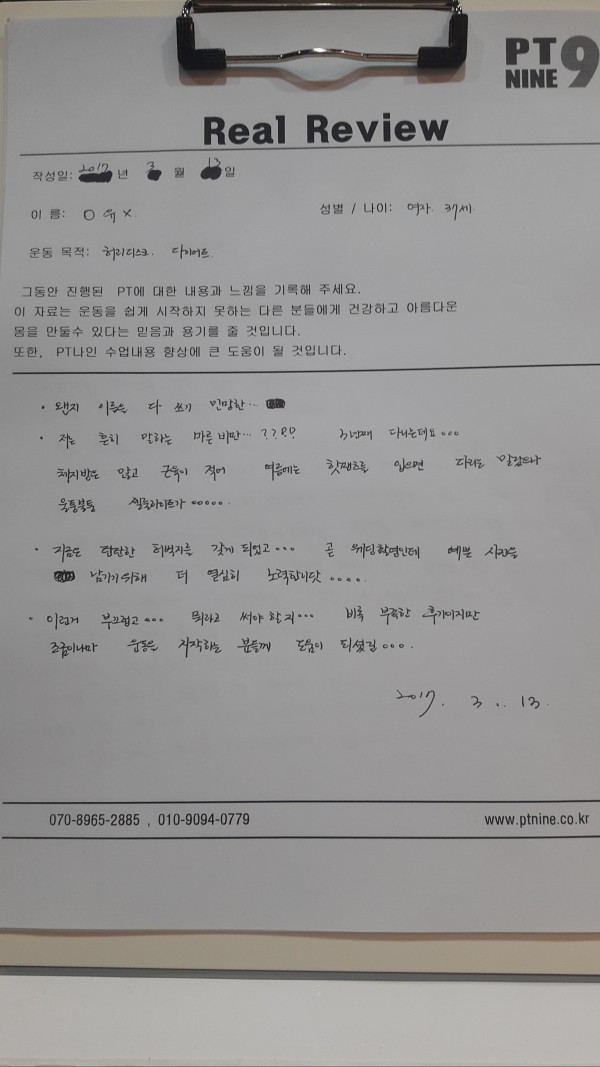 PT NINE 9
Real Review
작성일: 2017 년 3 월 13 일
이 름: O 유 X
성별 / 나이: 여자. 37세
운동 목적: 허리디스크. 다이어트.
그동안 진행된 PT에 대한 내용과 느낌을 기록해 주세요.
이 자료는 운동을 쉽게 시작하지 못하는 다른 분들에게 건강하고 아름다운
몽을 만둘수 있다는 믿음과 용기를 줄 것입니다.
또한, PT나인 수업내용 향상에 큰 도움이 될 것입니다.
• 왠지 이름은 다 쓰기 민망한...
• 저는 흔히 말하는 마른 비만... ???? 3년째 다니는데요...
체지방은 많고 근육이 적어 여름에는 핫팬츠를 입으면 다리는 말랐으나
울퉁불퉁 셀룰라이트가 .....
• 지금은 탄탄한 허벅지를 갖게 되었고... 곧 웨딩촬영인데 예쁜 사진을
남기기위해 더 열심히 노력합니닷 ....
• 이런거 부끄럽고... 뭐라고 써야 할지... 비록 부족한 후기이지만
조금이나마 운동을 시작하는 분들께 도움이 되셨길....
2017. 3. 13.
070-8965-2885 , 010-9094-0779
www.ptnine.co.kr